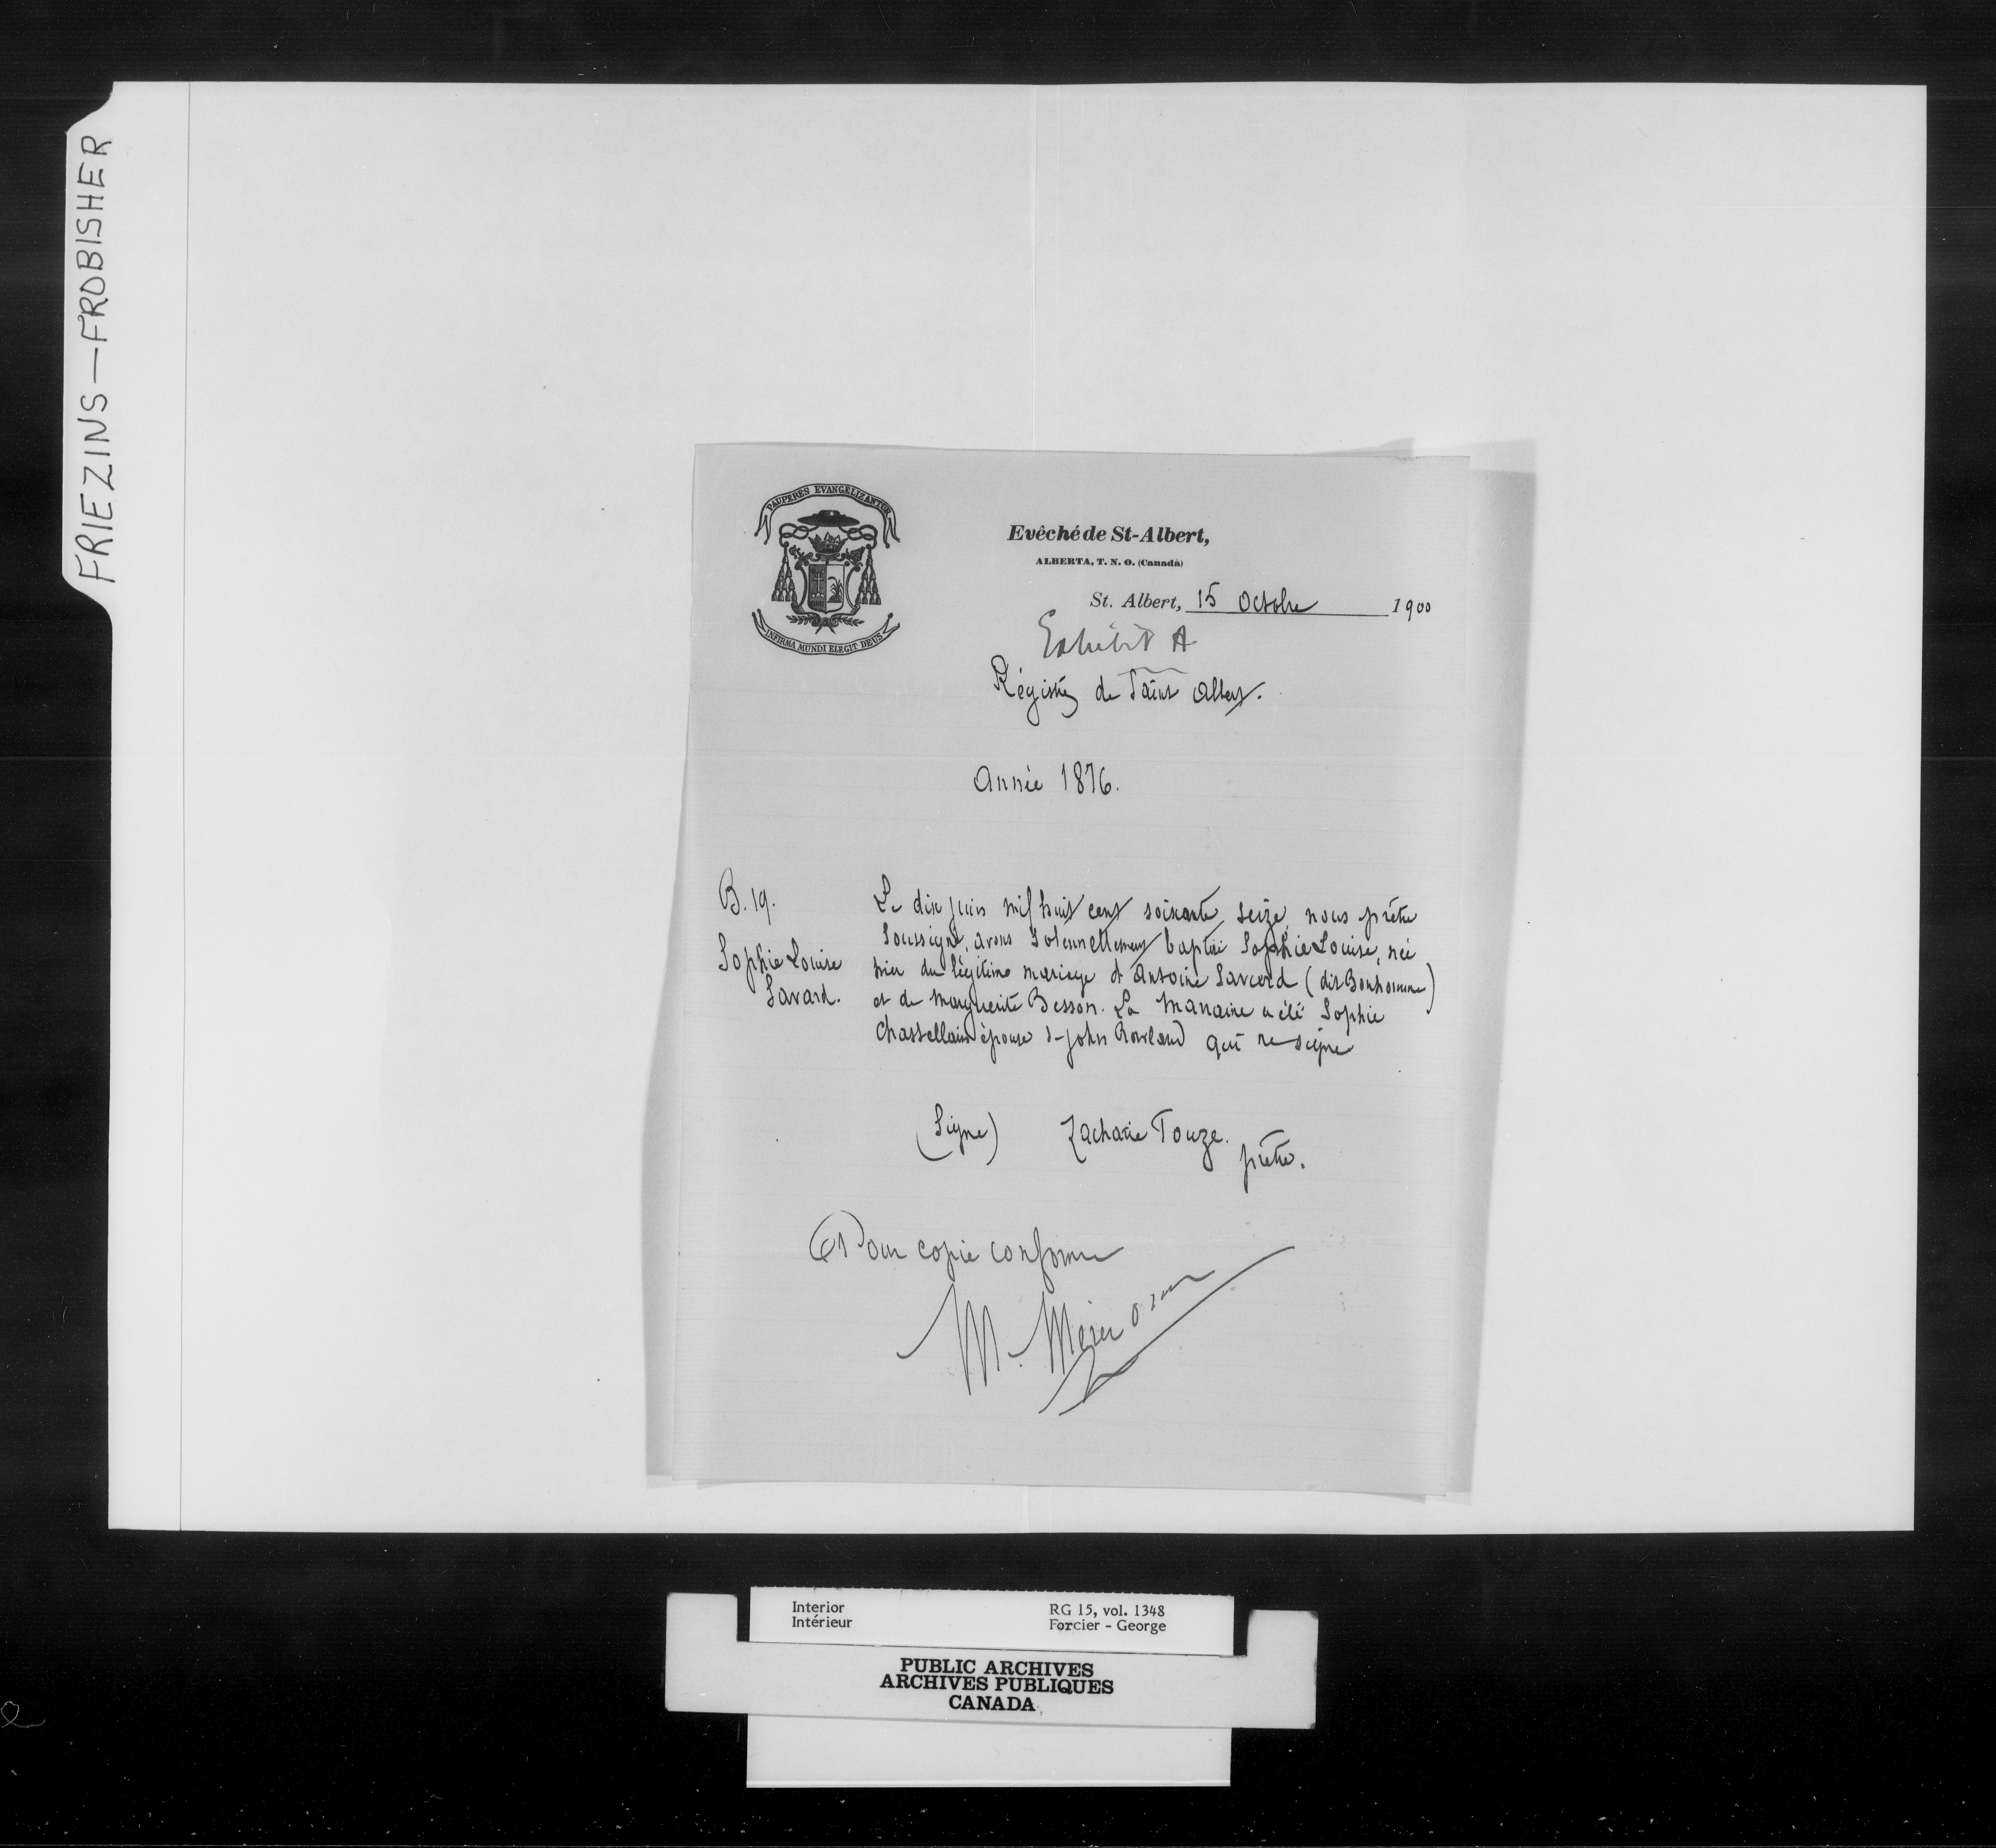 FRIEZINS — FROBISHER
PAUPERES EVANGELIZANTUR
OMI
INFIRMA MUNDI ELEGIT DEUS
Evêché de St-Albert,
ALBERTA, T. N. O. (Canada)
St. Albert, 15 Octobre 1900
Exhibit A
Régistre de Saint Albert.
Année 1876.
B. 19.
Sophie Louise
Savard.
Le dix juin mil huit cent soixante seize, nous prêtre
soussigné, avons solennellement baptisé Sophie Louise, née
hier du légitime mariage d'Antoine Savard (dit Bonhomme)
et de Marguerite Besson. La Marraine a été Sophie
Chastellain épouse d-John Rowland qui ne signe
(Signé) Zacharie Touze.
prêtre.
Pour copie conforme
M.
Interior
Intérieur
RG 15, vol. 1348
Forcier - George
PUBLIC ARCHIVES
ARCHIVES PUBLIQUES
CANADA